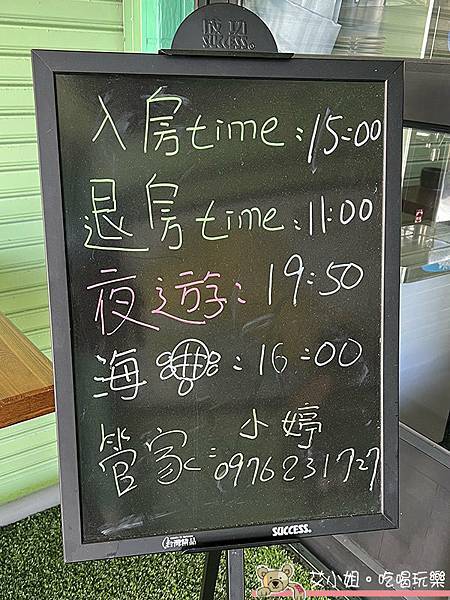 成功
SUCCESS
入房time:15:00
退房time:11:00
夜遊:19:50
海:16:00
小婷
管家:0976231727
台灣精品
SUCCESS
艾小姐。吃喝玩樂